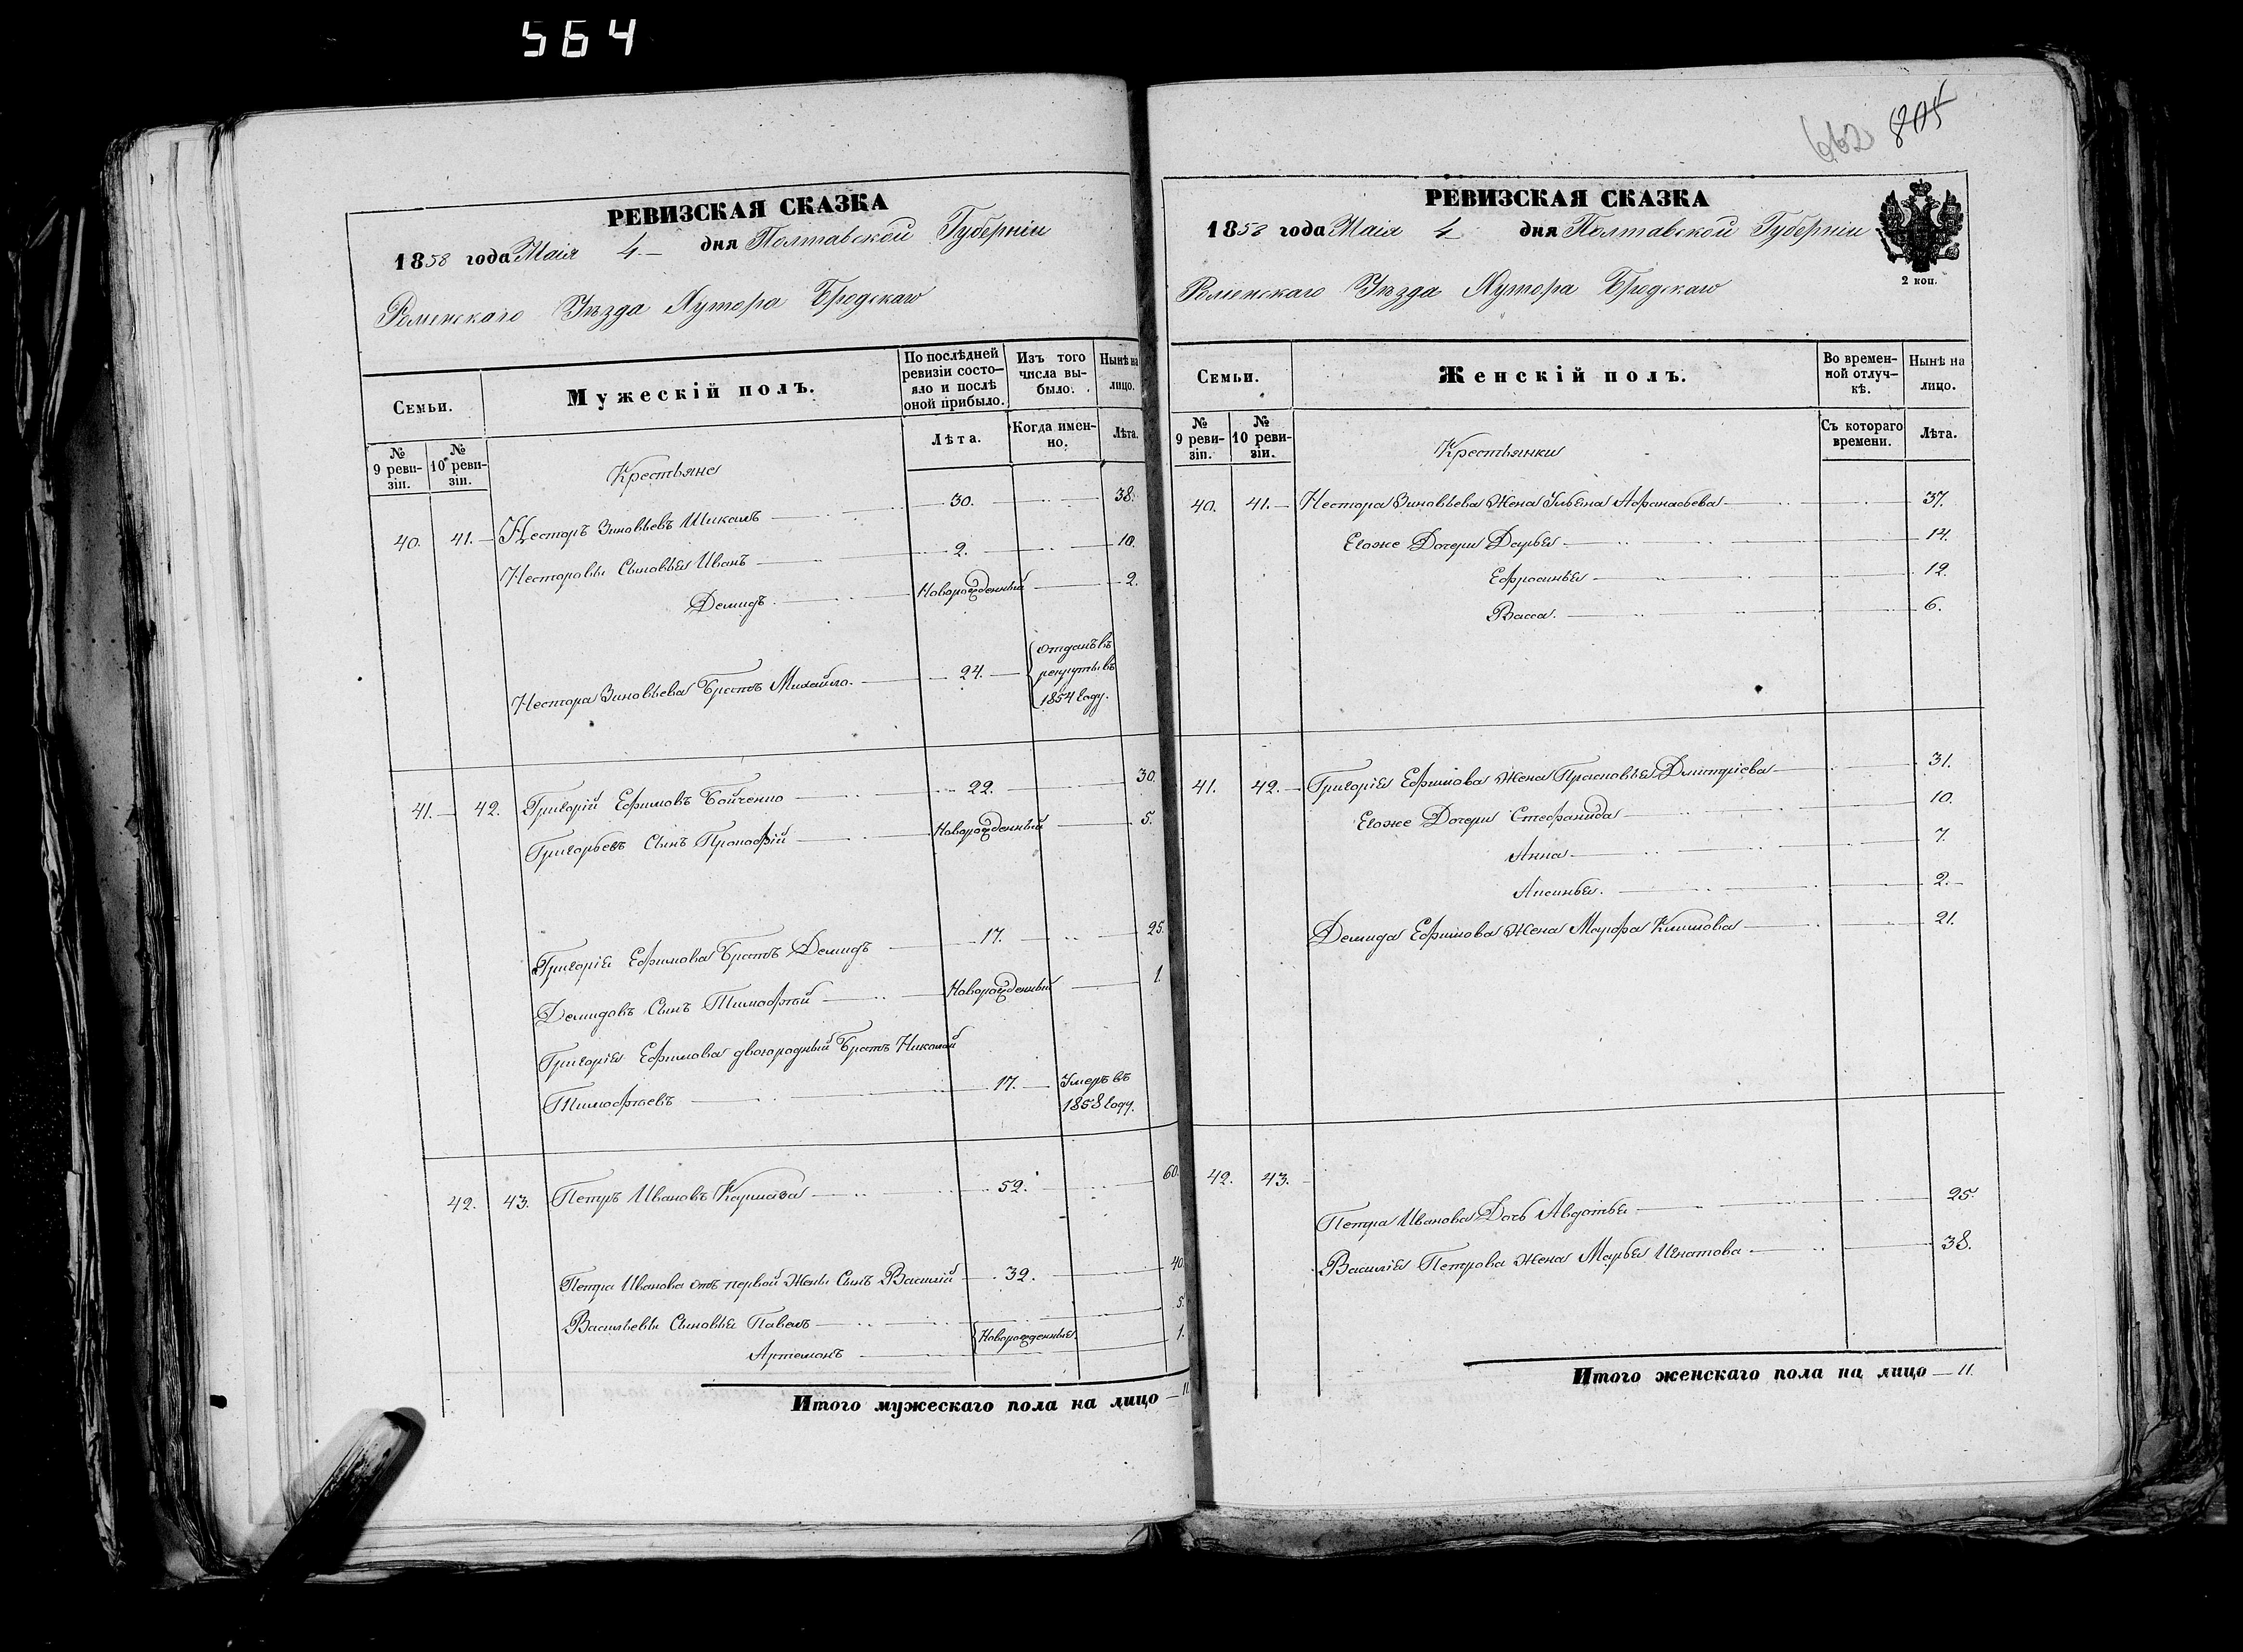 564
РЕВИЗСКАЯ СКАЗКА
1858 года Маія 4.— дня Полтавской Губерніи
Роменскаго Уѣзда Хутора Бродскаго
Семьи.
Мужескій полъ.
По послѣдней ревизіи состо-яло и послѣ оной прибыло.
Изъ того числа вы-было.
Нынѣ на лицо.
№ 9 реви-зіи.
№ 10 реви-зіи.
Лѣта.
Когда имен-но.
Лѣта.
Крестьяне
40. 41. Несторъ Зиновьевъ Шикаль 30. 38.
Несторовы Сыновья Иванъ 2. 10.
Демидъ Новорожденный 2.
Нестора Зиновьева Братъ Михайло 24. отданъ въ рекруты въ 1854 году.
41. 42. Григорій Ефимовъ Бойченко 22. 30.
Григорьевъ Сынъ Прокофій Новорожденный 5.
Григорія Ефимова Братъ Демидъ 17. 25.
Демидовъ Сынъ Тимофѣй Новорожденный 1.
Григорія Ефимова двоюродный Братъ Николай
Тимофѣевъ 17. Умеръ въ 1858 году.
42. 43. Петръ Ивановъ 52. 60.
Петра Иванова отъ первой Жены Сынъ Василій 32. 40.
Васильевы Сыновья Павелъ 5.
Артемонъ Новорожденные 1.
Итого мужескаго пола на лицо — 11
662 805
РЕВИЗСКАЯ СКАЗКА
1858 года Маія 4 дня Полтавской Губерніи
2 коп.
Роменскаго Уѣзда Хутора Бродскаго
Семьи.
Женскій полъ.
Во времен-ной отлуч-кѣ.
Нынѣ на лицо.
№ 9 реви-зіи.
№ 10 реви-зіи.
Съ котораго времени.
Лѣта.
Крестьянки
40. 41. Нестора Зиновьева Жена Ульяна Афанасьева 37.
Егоже Дочери Дарья 14.
Ефросинья 12.
Васса 6.
41. 42. Григорія Ефимова Жена Прасковья Дмитріева 31.
Егоже Дочери Стефанида 10.
Анна 7.
Аксинья 2.
Демида Ефимова Жена Марфа Климова 21.
42. 43.
Петра Иванова Дочь Авдотья 25.
Василія Петрова Жена Марья Игнатова 38.
Итого женскаго пола на лицо — 11.